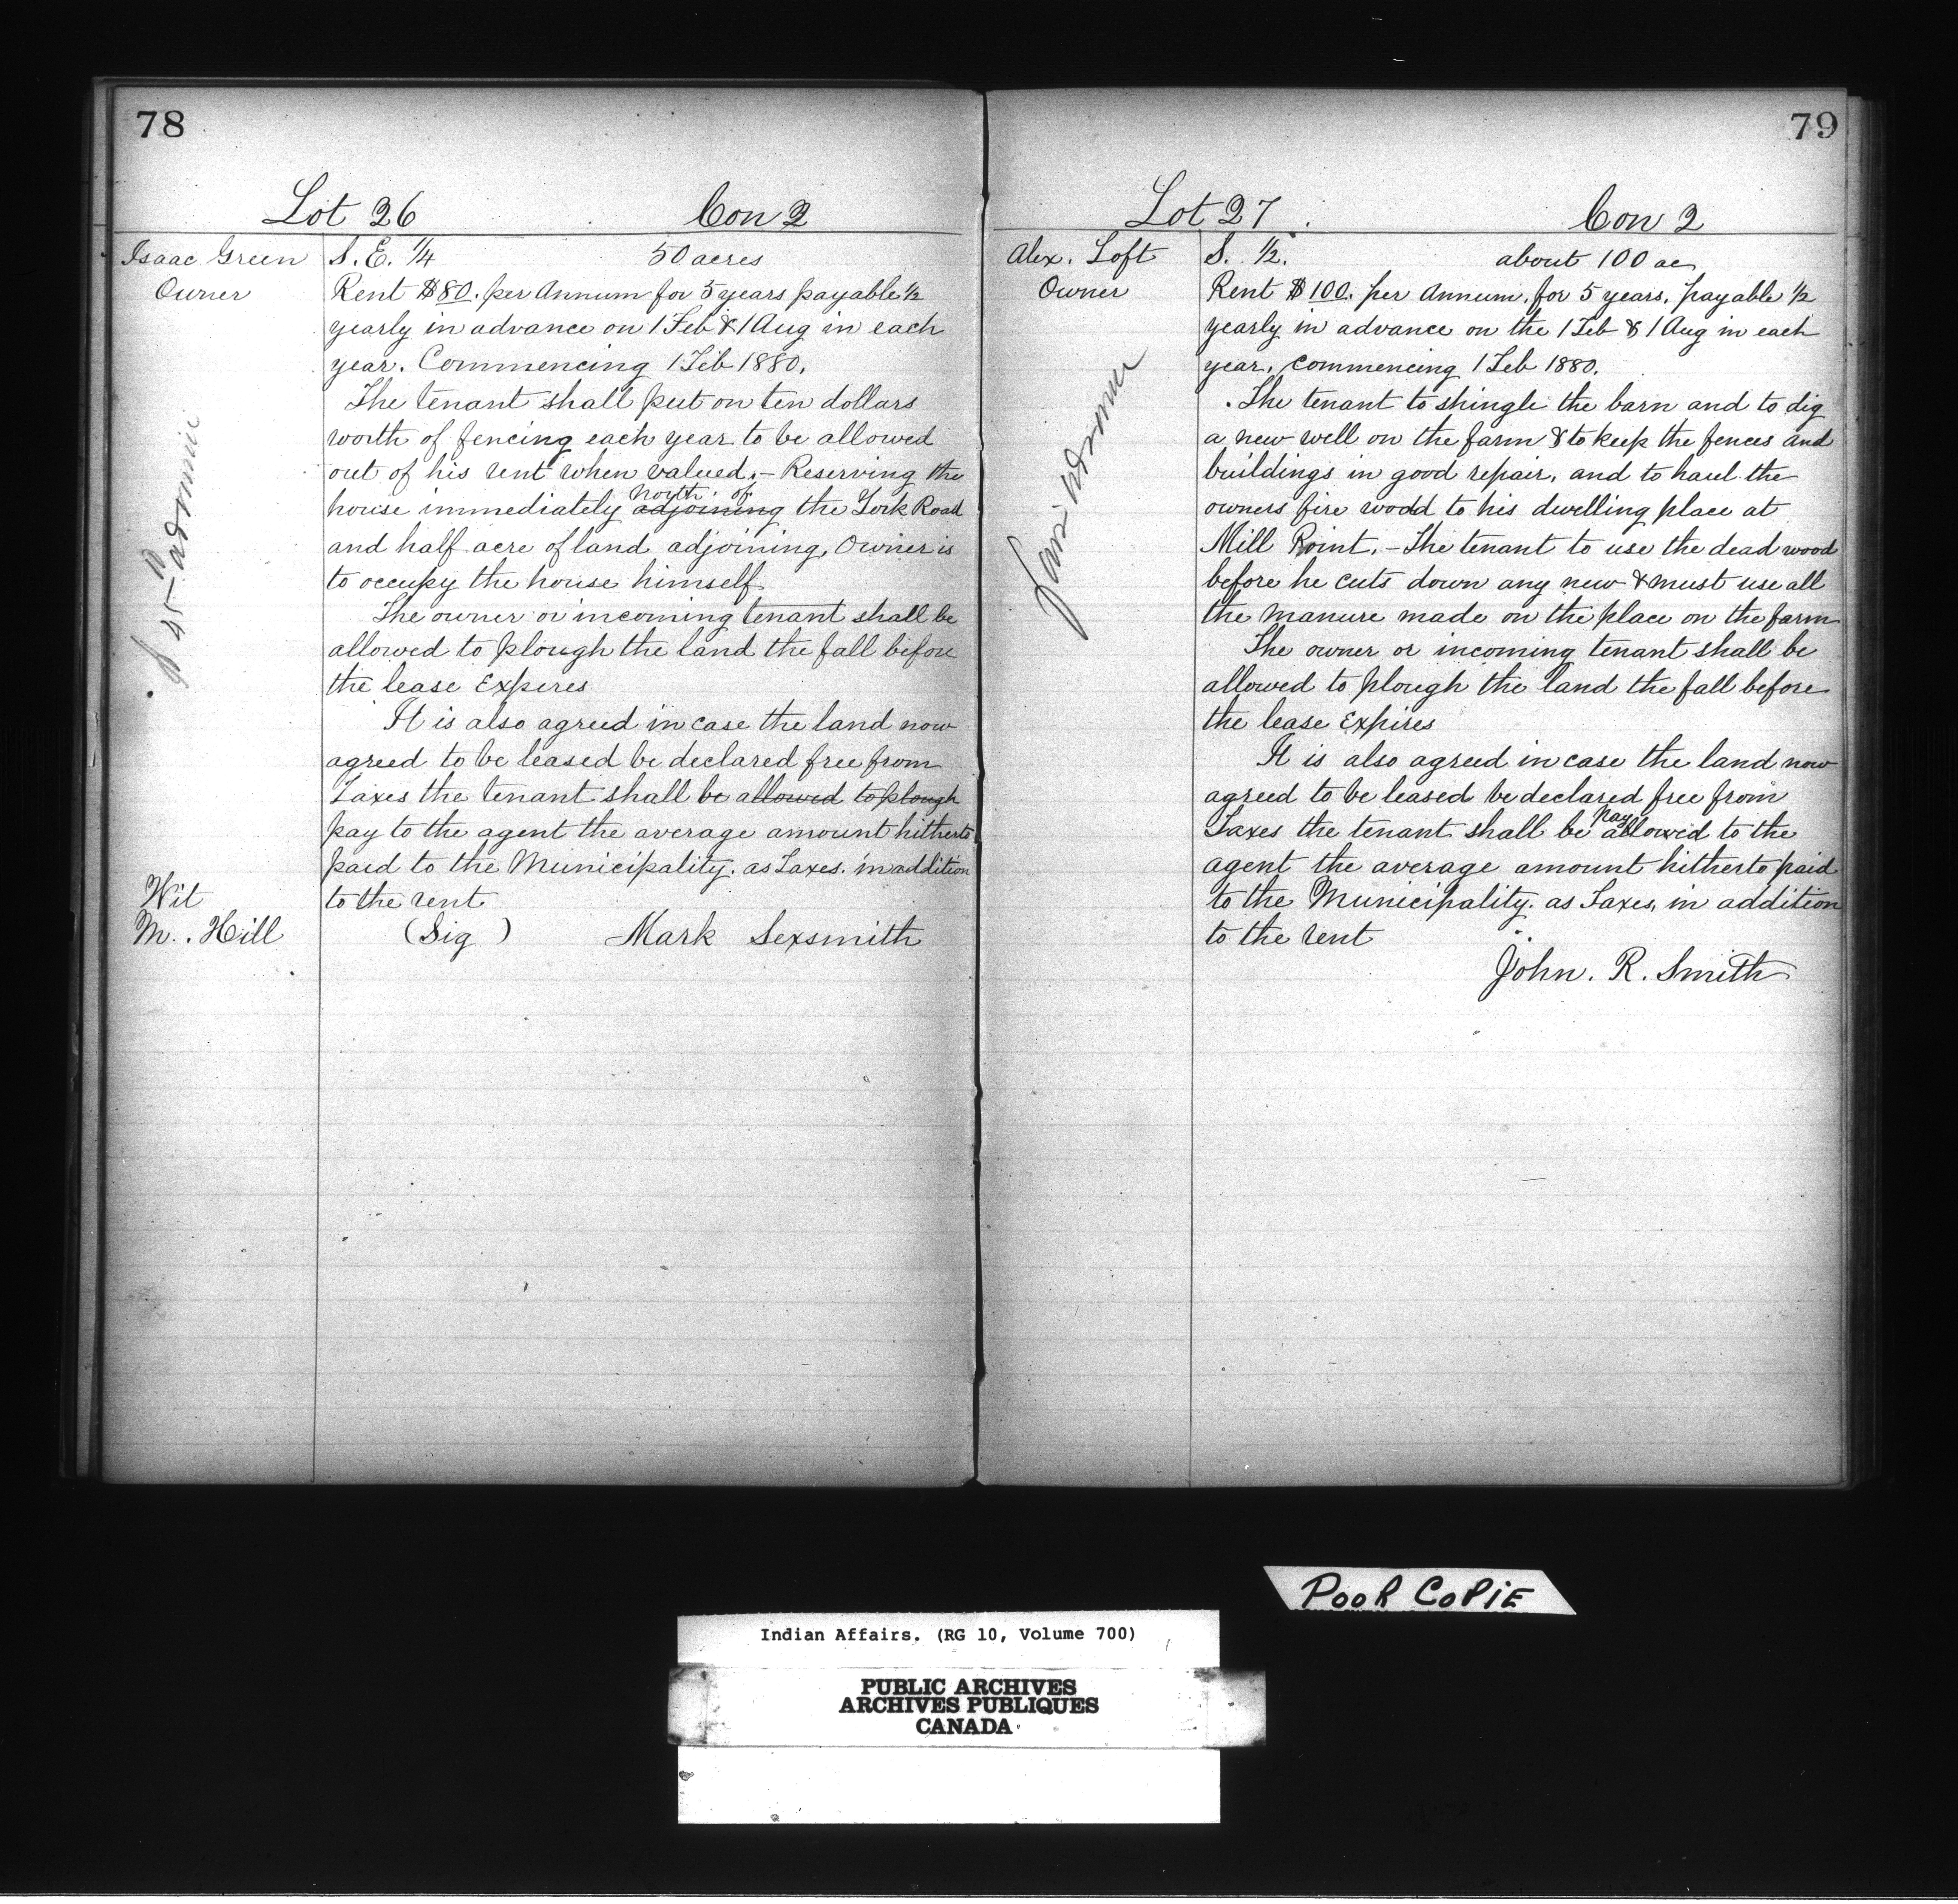 78
Lot 26 Con 2
Isaac Green S. E. 1/4 50 acres
Owner Rent $80. per Annum for 5 years payable 1/2
yearly in advance on 1 Feb & 1 Aug in each
year. Commencing 1 Feb 1880.
The tenant shall put on ten dollars
worth of fencing each year to be allowed
out of his rent when valued. – Reserving the
north of
house immediately adjoining the York Road
and half acre of land adjoining, Owner is
to occupy the house himself
The owner or incoming tenant shall be
allowed to plough the land the fall before
the lease Expires
It is also agreed in case the land now
agreed to be leased be declared free from
Taxes the tenant shall be allowed to plough
pay to the agent the average amount hitherto
paid to the Municipality. as Taxes. in addition
Wit to the rent
M. Hill (Sig ) Mark Sexsmith
79
Lot 27 Con 2
Alex. Loft S. 1/2. about 100 ac
Owner Rent $100. per Annum, for 5 years, payable 1/2
yearly in advance on the 1 Feb & 1 Aug in each
year, commencing 1 Feb 1880.
The tenant to shingle the barn and to dig
a new well on the farm & to keep the fences and
buildings in good repair, and to haul the
owners fire wood to his dwelling place at
Mill Point. – The tenant to use the dead wood
before he cuts down any new & must use all
the manure made on the place on the farm
The owner or incoming tenant shall be
allowed to plough the land the fall before
the lease Expires
It is also agreed in case the land now
agreed to be leased be declared free from
pay
Taxes the tenant shall be allowed to the
agent the average amount hitherto paid
to the Municipality. as Taxes, in addition
to the rent
John. R. Smith
POOR COPIE
Indian Affairs. (RG 10, Volume 700)
PUBLIC ARCHIVES
ARCHIVES PUBLIQUES
CANADA